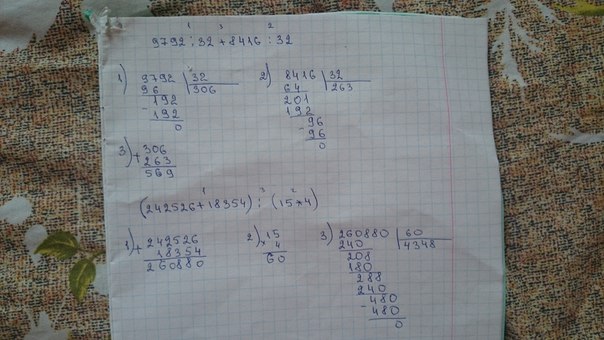 1 3 2
9792 : 32 + 8416 : 32
1) 9792 | 32
96 306
- 192
192
0
2) 8416 | 32
64 263
201
192
- 96
96
0
3) + 306
263
569
1 3 2
(242526 + 18354) : (15 * 4)
1) + 242526
18354
260880
2) × 15
4
60
3) 260880 | 60
240 4348
208
180
288
240
- 480
480
0